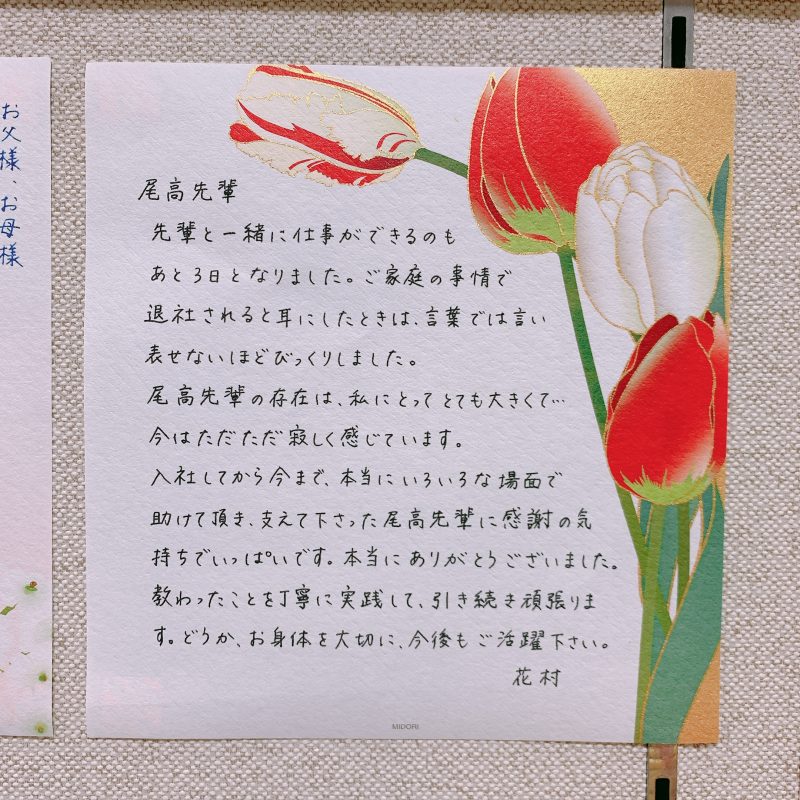 お父様、お母様
尾高先輩
先輩と一緒に仕事ができるのも
あと3日となりました。ご家庭の事情で
退社されると耳にしたときは、言葉では言い
表せないほどびっくりしました。
尾高先輩の存在は、私にとってとても大きくて…
今はただただ寂しく感じています。
入社してから今まで、本当にいろいろな場面で
助けて頂き、支えて下さった尾高先輩に感謝の気
持ちでいっぱいです。本当にありがとうございました。
教わったことを丁寧に実践して、引き続き頑張りま
す。どうか、お身体を大切に、今後もご活躍下さい。
花村
MIDORI